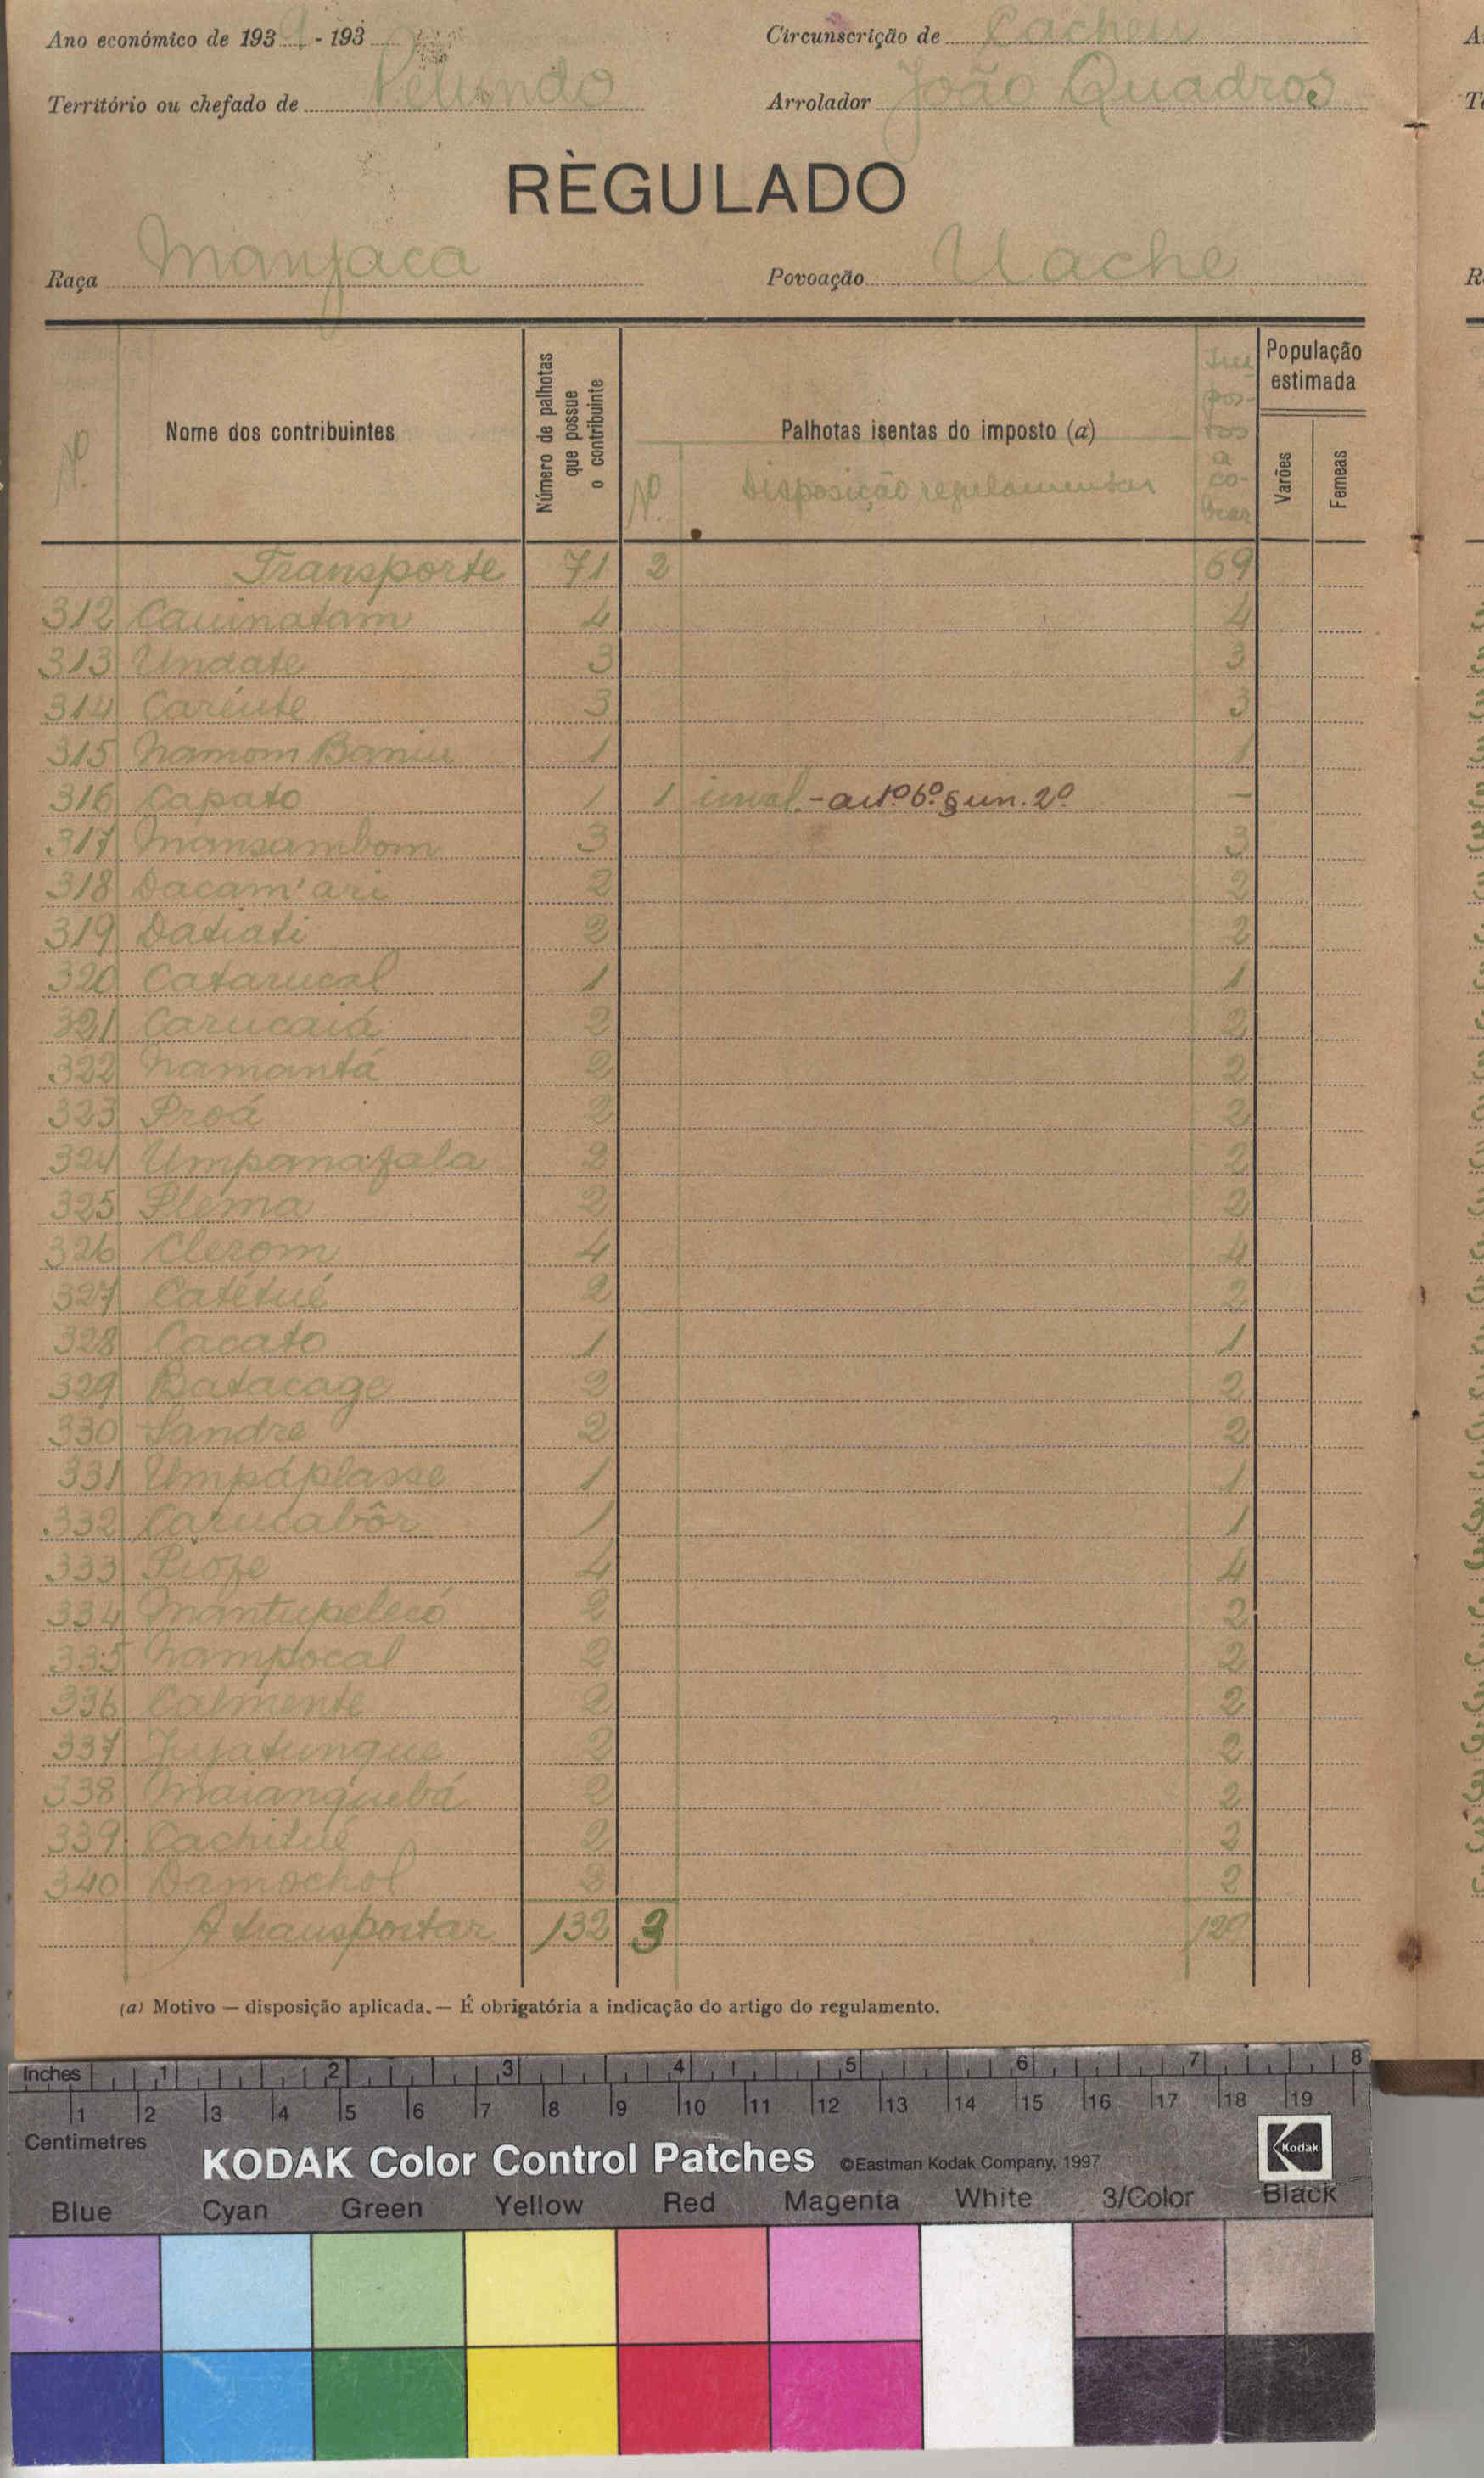 Ano económico de 1939 - 193
Circunscrição de Cacheu
Território ou chefado de Pelundo
Arrolador João Quadros
RÈGULADO
Raça Manjaca
Povoação Uache
Nº
Nome dos contribuintes
Número de palhotas que possue o contribuinte
Palhotas isentas do imposto (a)
Nº
Disposição regulamentar
Impostos a cobrar
População estimada
Varões
Femeas
Transporte 71 2 69
312 Cauinatam 4 4
313 Undate 3 3
314 Cariute 3 3
315 Namom Baniu 1 1
316 Capato 1 1 inval. - artº 6º § un. 2º -
317 Mansambom 3 3
318 Dacam'ari 2 2
319 Datiati 2 2
320 Catarucal 1 1
321 Carucaiá 2 2
322 Namantá 2 2
323 Proá 2 2
324 Umpanafala 2 2
325 Plema 2 2
326 Clerom 4 4
327 Catétué 2 2
328 Cacato 1 1
329 Batacage 2 2
330 Sandre 2 2
331 Umpáplasse 1 1
332 Carucabôr 1 1
333 Pioze 4 4
334 Mantupelecó 2 2
335 Nampocal 2 2
336 Calmente 2 2
337 Jujatungue 2 2
338 Maianguebá 2 2
339 Cachitué 2 2
340 Damochol 2 2
A transportar 132 3 129
(a) Motivo — disposição aplicada. — É obrigatória a indicação do artigo do regulamento.
Inches 1 2 3 4 5 6 7 8
1 2 3 4 5 6 7 8 9 10 11 12 13 14 15 16 17 18 19
Centimetres
KODAK Color Control Patches ©Eastman Kodak Company, 1997 Kodak
Blue Cyan Green Yellow Red Magenta White 3/Color Black